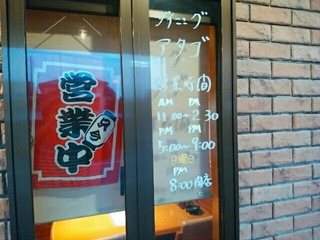 アタゴ
営業時間
AM PM
11:00~2:30
PM PM
5:00~9:00
日曜日
PM
8:00閉店
営業中